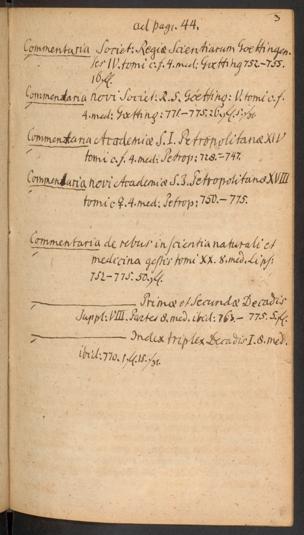 3
ad pagi. 44.
Commentaria Societ: Regiæ Scientiarum Goettingen-
ses IV. tomi c.f. 4. med: Goetting 752.–755.
16 ff.
Commentaria novi Societ: R. S. Goetting: V. tomi c. f.
4. med: Goetting: 771.–775.
Commentaria Academiæ S. I. Petropolitanæ XIV
tomi c. f. 4. med: Petrop: 728.–747.
Commentaria novi Academiæ S. I. Petropolitanæ XVIII
tomi c f. 4. med: Petrop: 750.–775.
Commentaria de rebus in scientia naturali et
medicina gestis tomi XX. 8. med. Lips:
752–775. 50. ff.
Primæ et Secundæ Decadis
Suppl: VIII. Partes 8. med. ibid: 763.– 775. 5. ff.
Index triplex Decadis I. 8. med.
ibid: 770. 1 ff. 15.